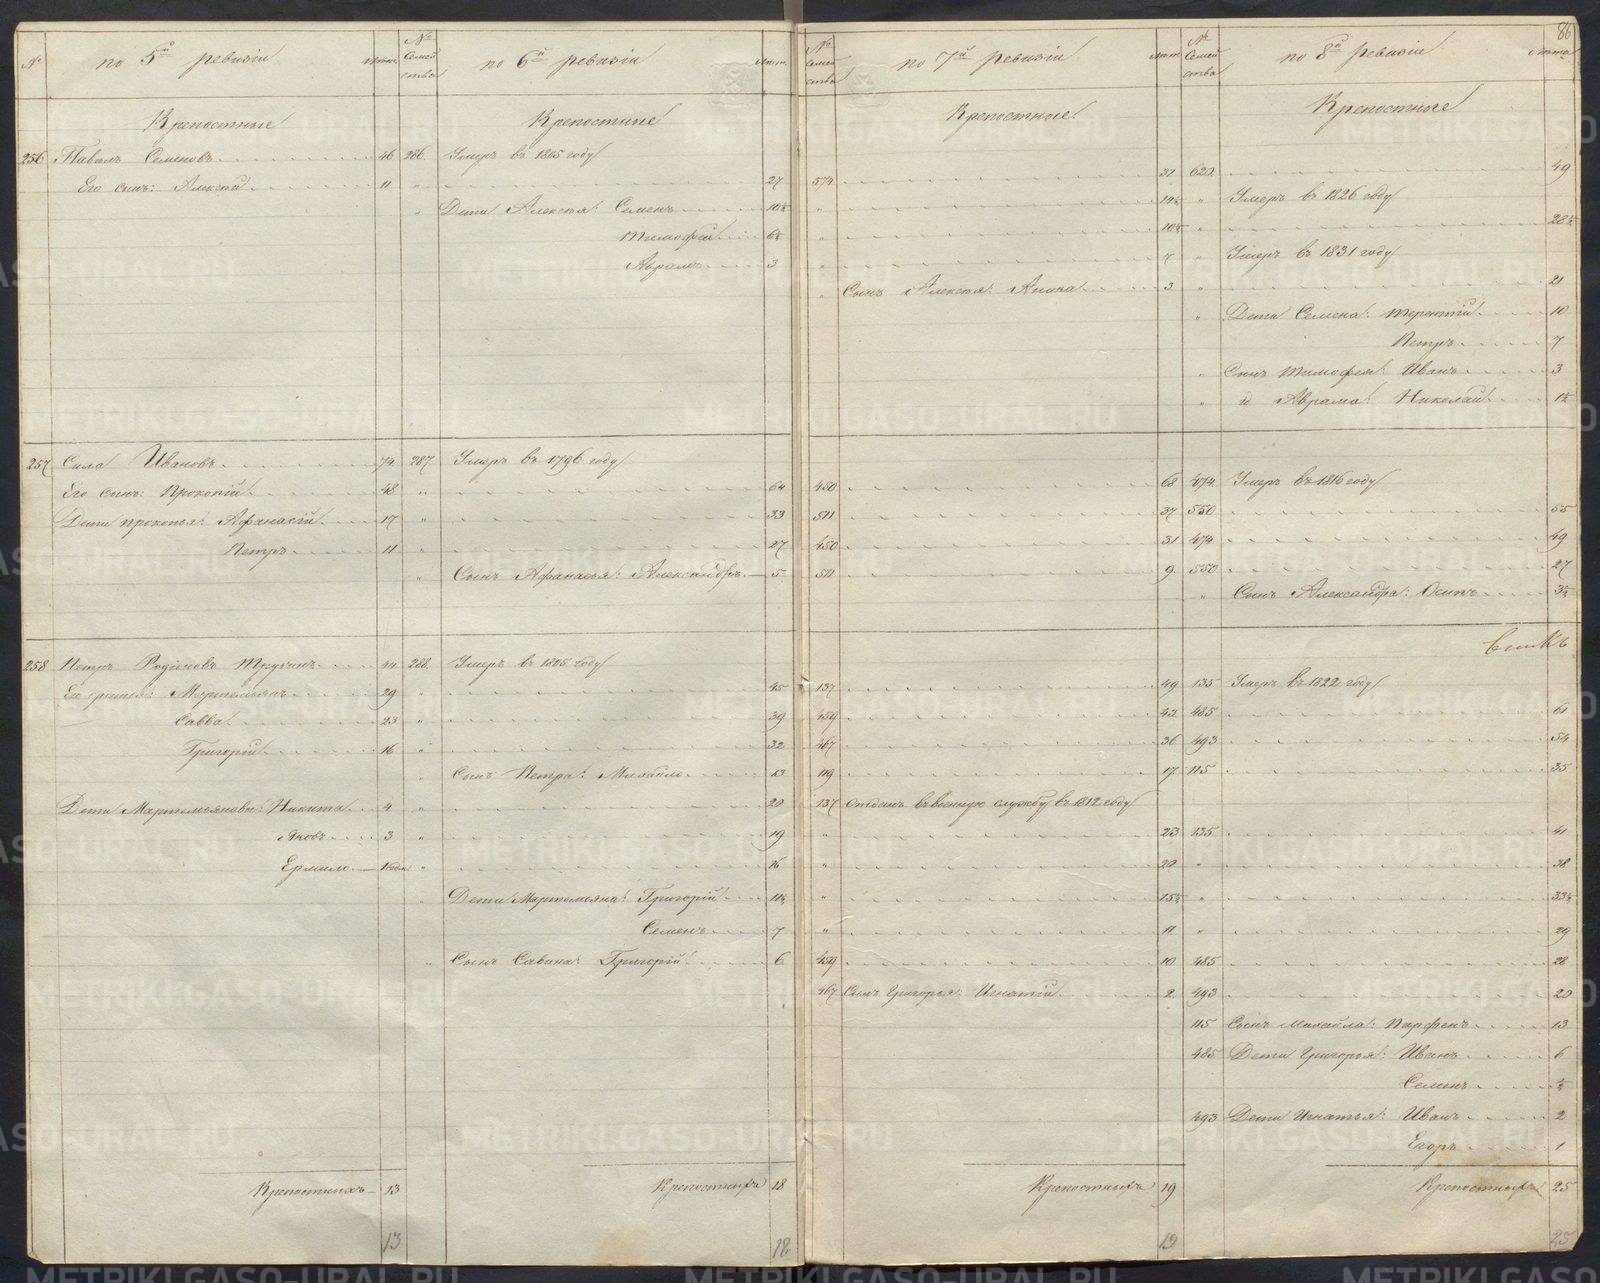 86
№ по 5й ревизіи лѣта № семейства по 6й ревизіи лѣта № семейства по 7й ревизіи лѣта № семейства по 8й ревизіи лѣта
Крепостные Крепостные Крепостные Крепостные
256 Павелъ Семеновъ 46 286 Умеръ въ 1805 году
Его сынъ: Алексѣй 11 " 27 574 31 620 49
" Дети Алексея: Семенъ 10½ " 14½ " Умеръ въ 1826 году
Тимофей 6½ " 10½ " 26½
Аврамъ 3 " 7 " Умеръ въ 1831 году
" Сынъ Алексея: Аника 3 " 21
" Дети Семена: Терентій 10
Петръ 7
" Сынъ Тимофея: Иванъ 3
" и Аврама: Николай 1½
257 Сила Ивановъ 74 287 Умеръ въ 1796 году
Его сынъ: Прокопій 48 " 64 450 68 474 Умеръ въ 1816 году
Дети Прокопья: Афанасій 17 " 33 511 37 550 55
Петръ 11 " 27 450 31 474 49
" Сынъ Афанасья: Александръ 5 511 9 550 27
" Сынъ Александра: Осипъ 3½
258 Петръ Родіоновъ 44 288 Умеръ въ 1805 году
Его братья: Мартемьянъ 29 " 45 137 49 135 Умеръ въ 1822 году
Савва 23 " 39 459 43 485 61
Григорій 16 " 32 467 36 493 54
" Сынъ Петра: Михайло 13 119 17 115 35
Дети Мартемьяновы: Никита 4 " 20 137 Отданъ въ военную службу въ 1812 году
Яковъ 3 " 19 " 23 135 41
Ермило 1 " 16 " 20 " 38
" Дети Мартемьяна: Григорій 11½ " 15½ " 33½
Семенъ 7 " 11 " 29
" Сынъ Савина: Григорій 6 459 10 485 28
467 Сынъ Григорья: Игнатій 2 493 20
115 Сынъ Михайла: Парфенъ 13
485 Дети Григорья: Иванъ 6
Семенъ ½
493 Дети Игнатья: Иванъ 2
Егоръ 1
Крепостныхъ 13 Крепостныхъ 18 Крепостныхъ 19 Крепостныхъ 25
13 18 19 25
METRIKI.GASO-URAL.RU